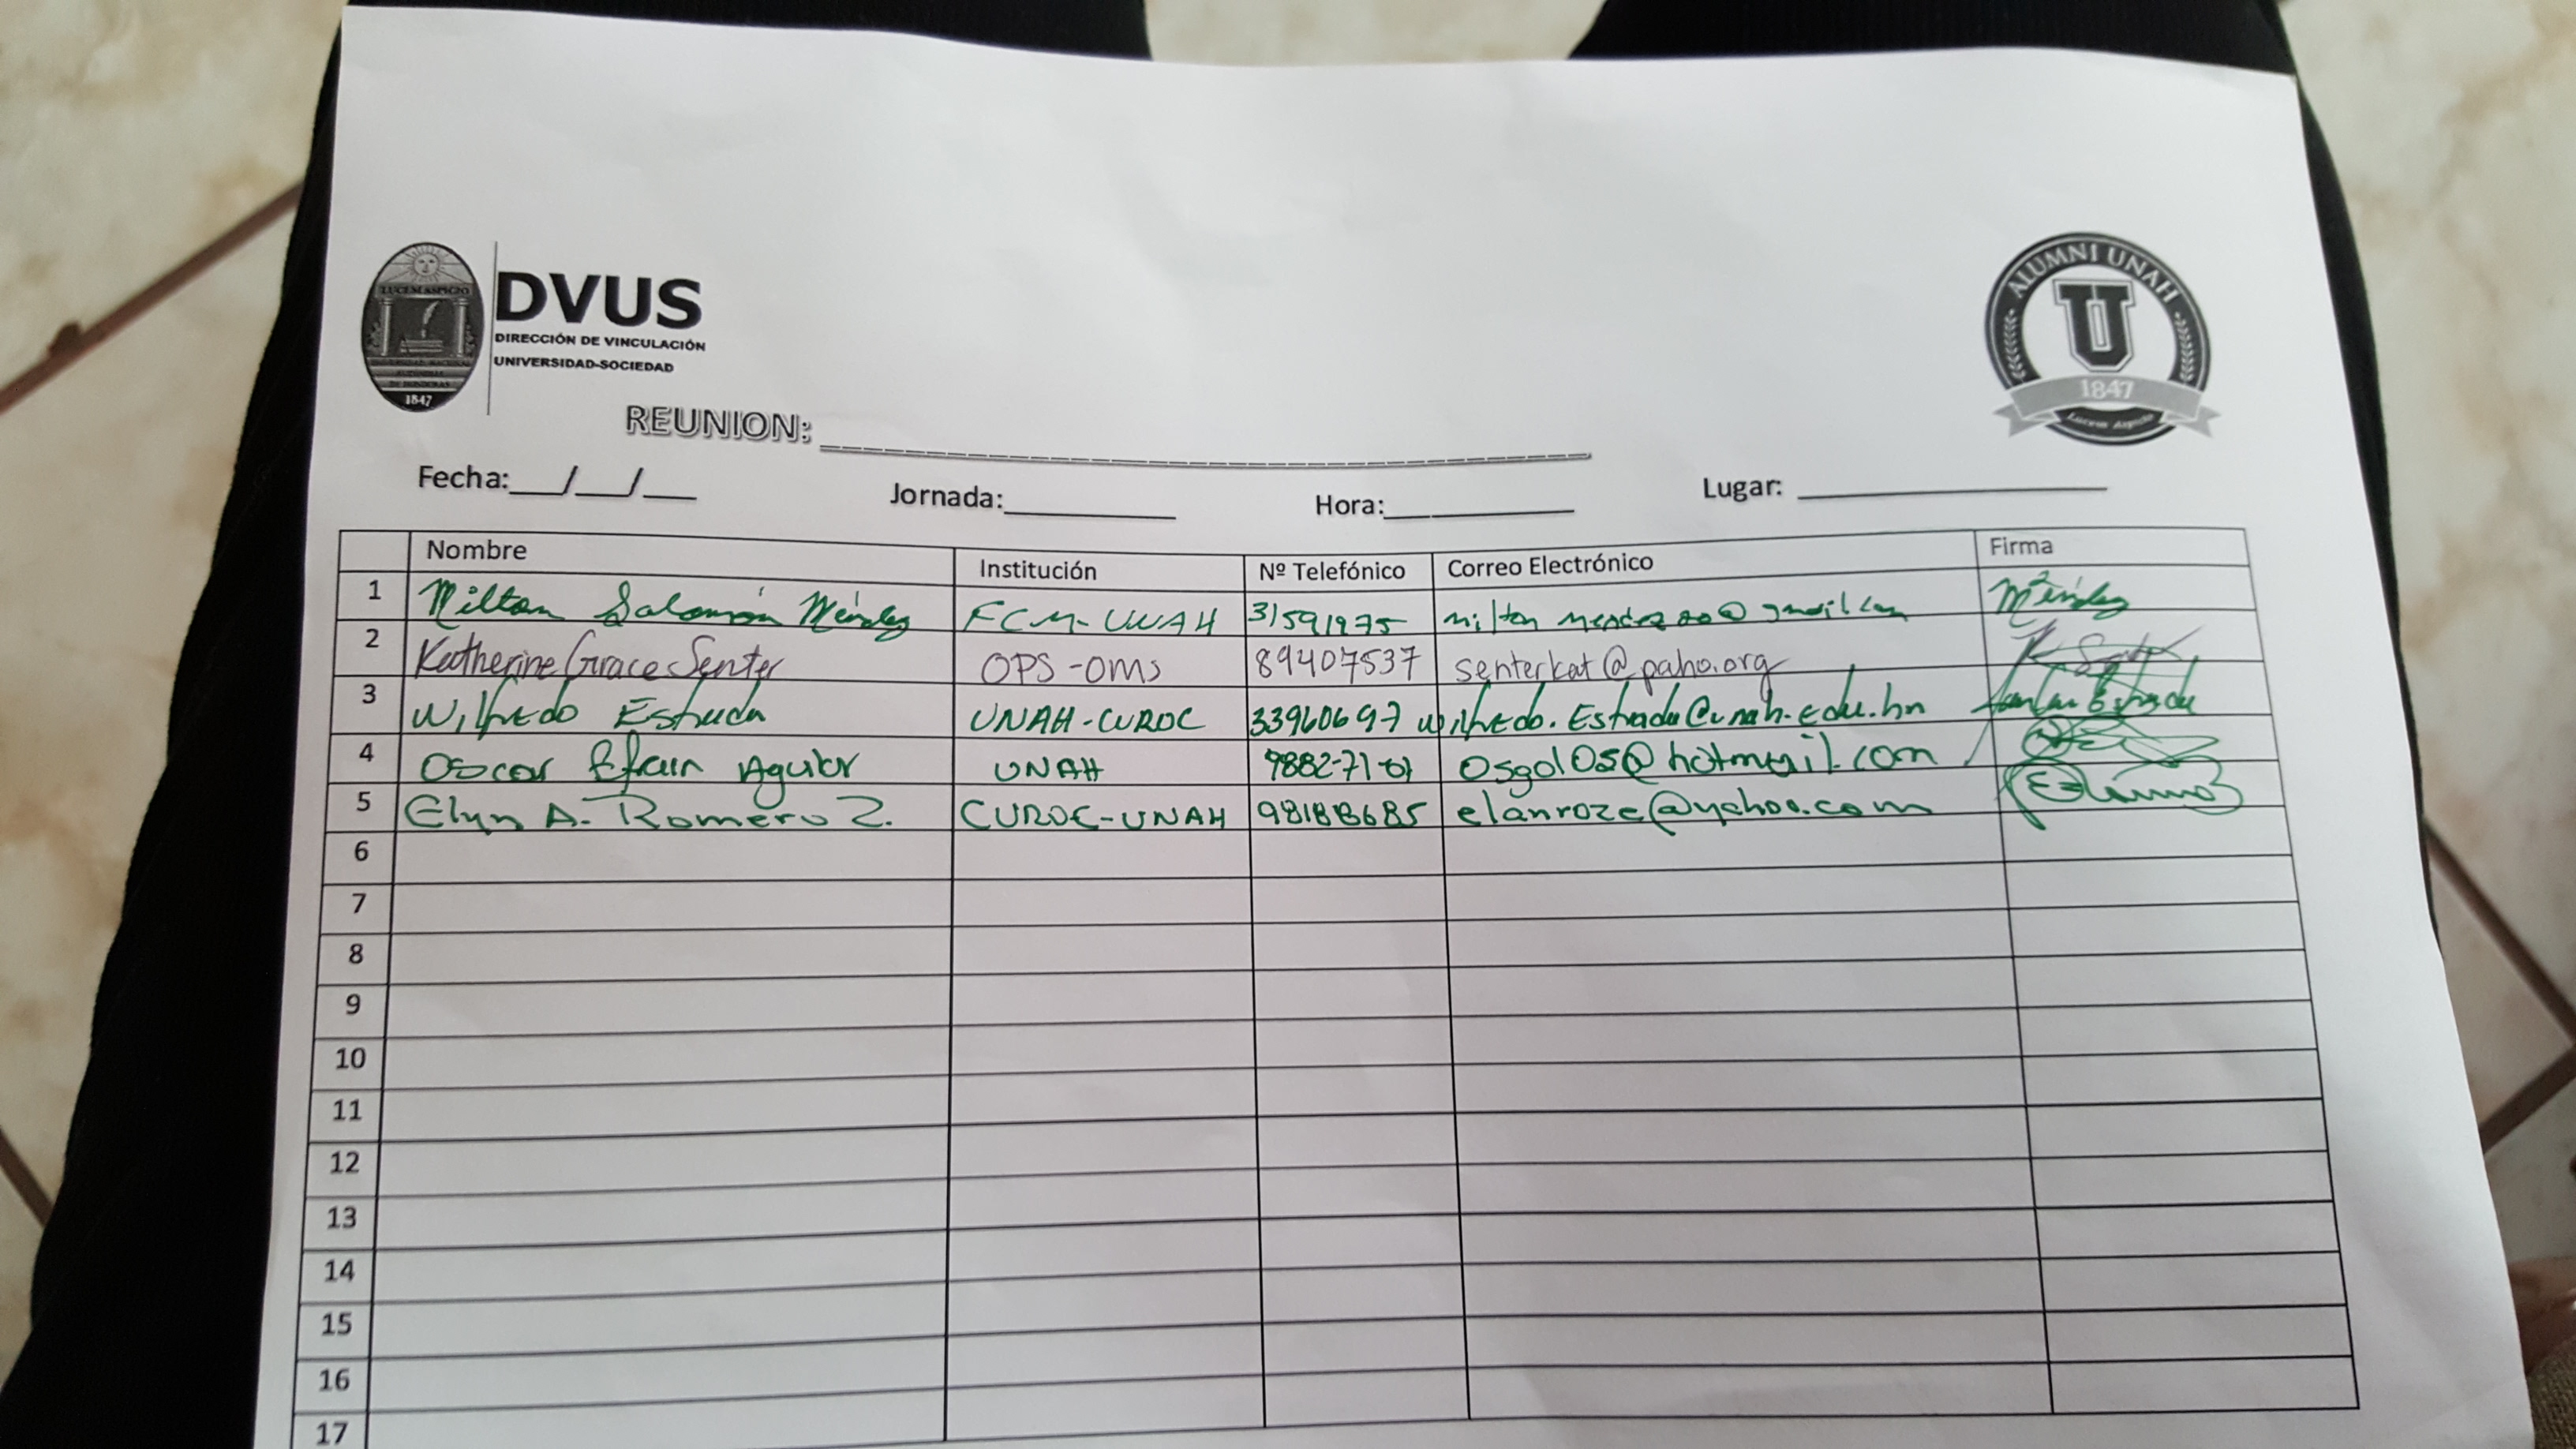 LUCEM ASPICIO
1847
DVUS
DIRECCIÓN DE VINCULACIÓN
UNIVERSIDAD-SOCIEDAD
ALUMNI UNAH
U
1847
Lucem Aspicio
REUNION: ___
Fecha:___/___/___ Jornada:___ Hora:___ Lugar: ___
Nombre Institución Nº Telefónico Correo Electrónico Firma
1 Milton Salomón Méndez FCM-UNAH 31591975 Méndez
2 Katherine Grace Senter OPS-OMS 89407537 senterkat@paho.org
3 Wilfredo Estrada UNAH-CUROC 33960697 wilfredo.Estrada@unah.edu.hn
4 Oscar Efrain Aguilar UNAH osgol05@hotmail.com
5 Elyn A. Romero Z. CUROC-UNAH elanroze@yahoo.com
6
7
8
9
10
11
12
13
14
15
16
17